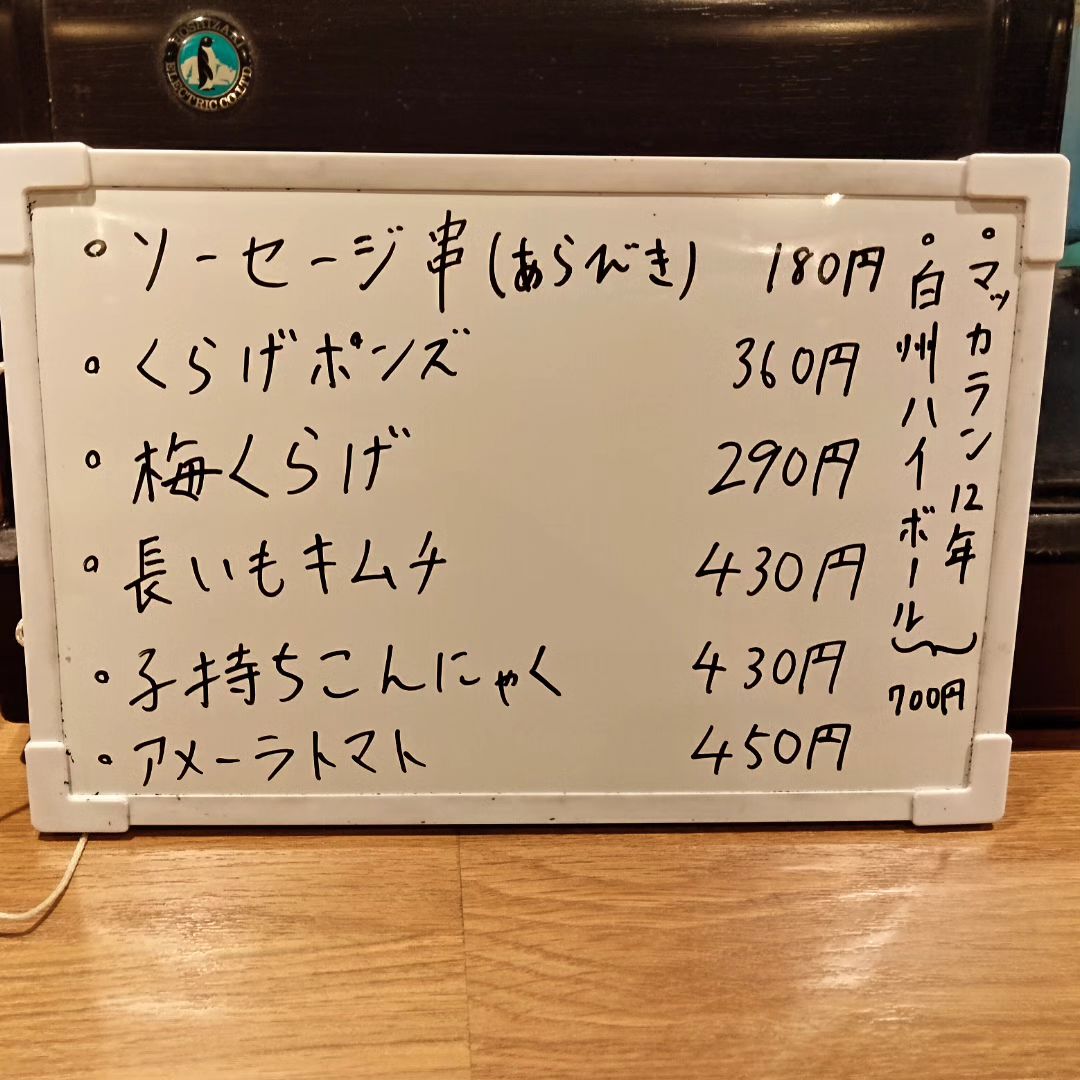 HOSHIZAKI
ELECTRIC CO.LTD.
ソーセージ串(あらびき) 180円
くらげポンズ 360円
梅くらげ 290円
長いもキムチ 430円
子持ちこんにゃく 430円
アメーラトマト 450円
マッカラン12年
白州ハイボール
700円